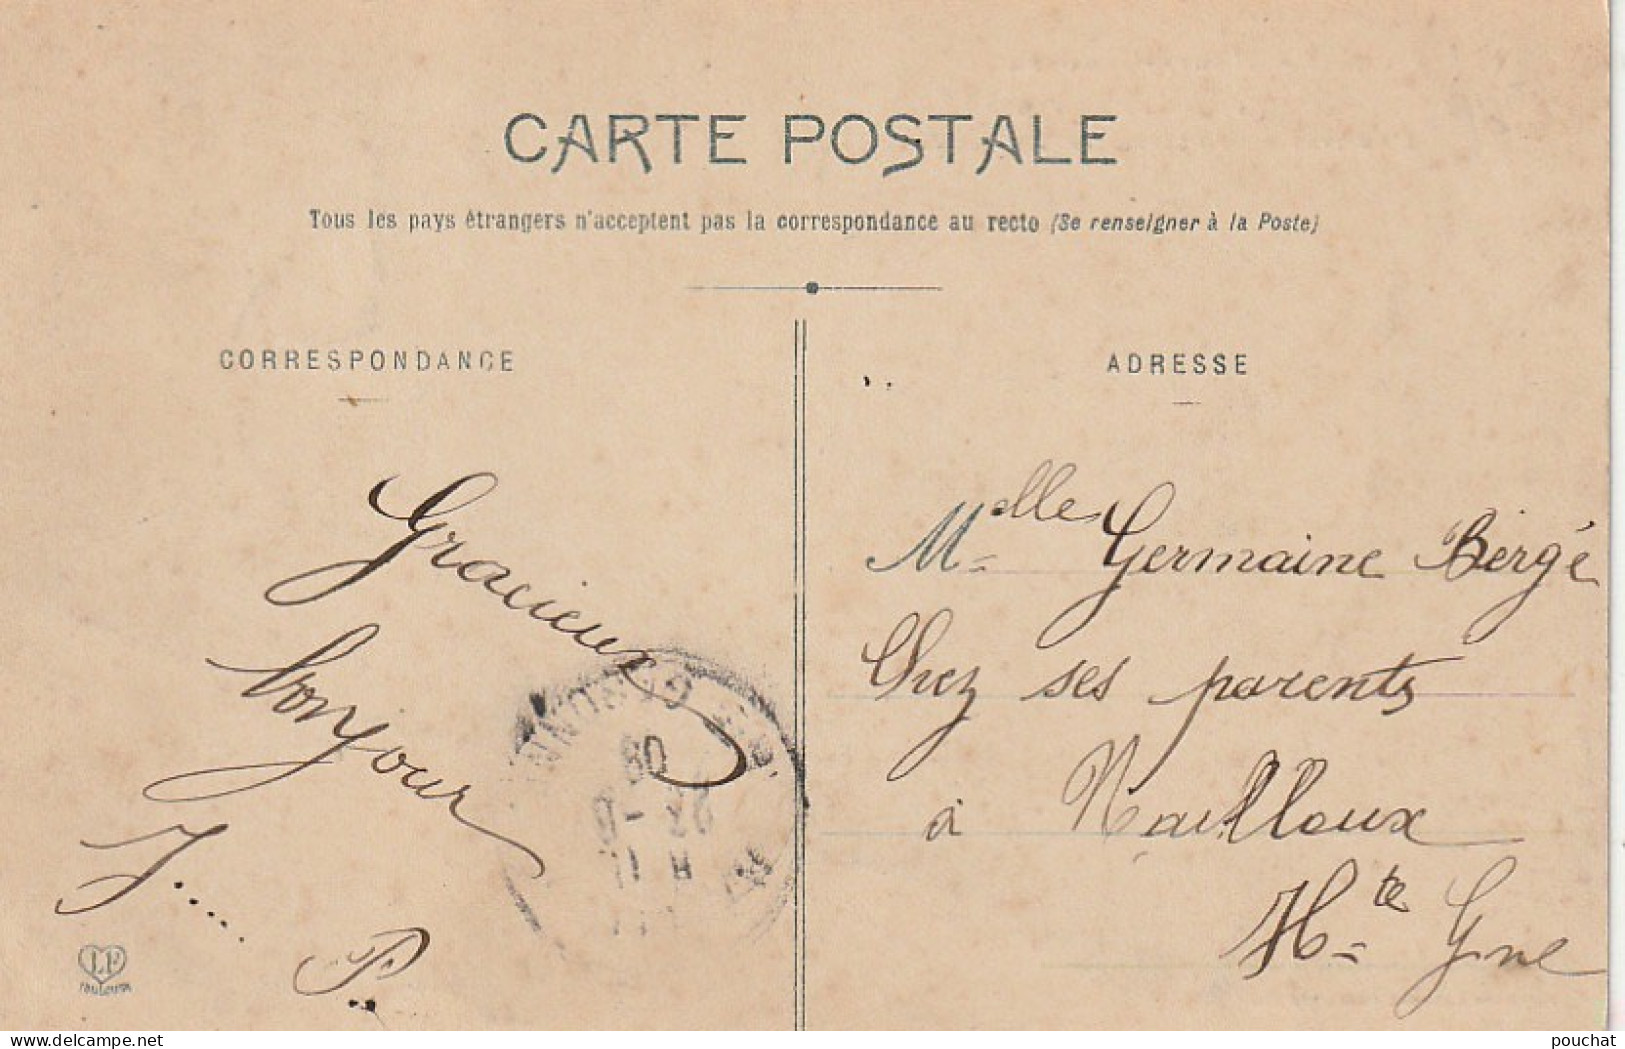 CARTE POSTALE
Tous les pays étrangers n'acceptent pas la correspondance au recto (Se renseigner à la Poste)
CORRESPONDANCE
Gracieux
bonjour
J.....
P..
LF
TOULOUSE
GARONNE
ADRESSE
Melle Germaine Bergé
Chez ses parents
à Nailloux
Hte Gne
www.delcampe.net
pouchat